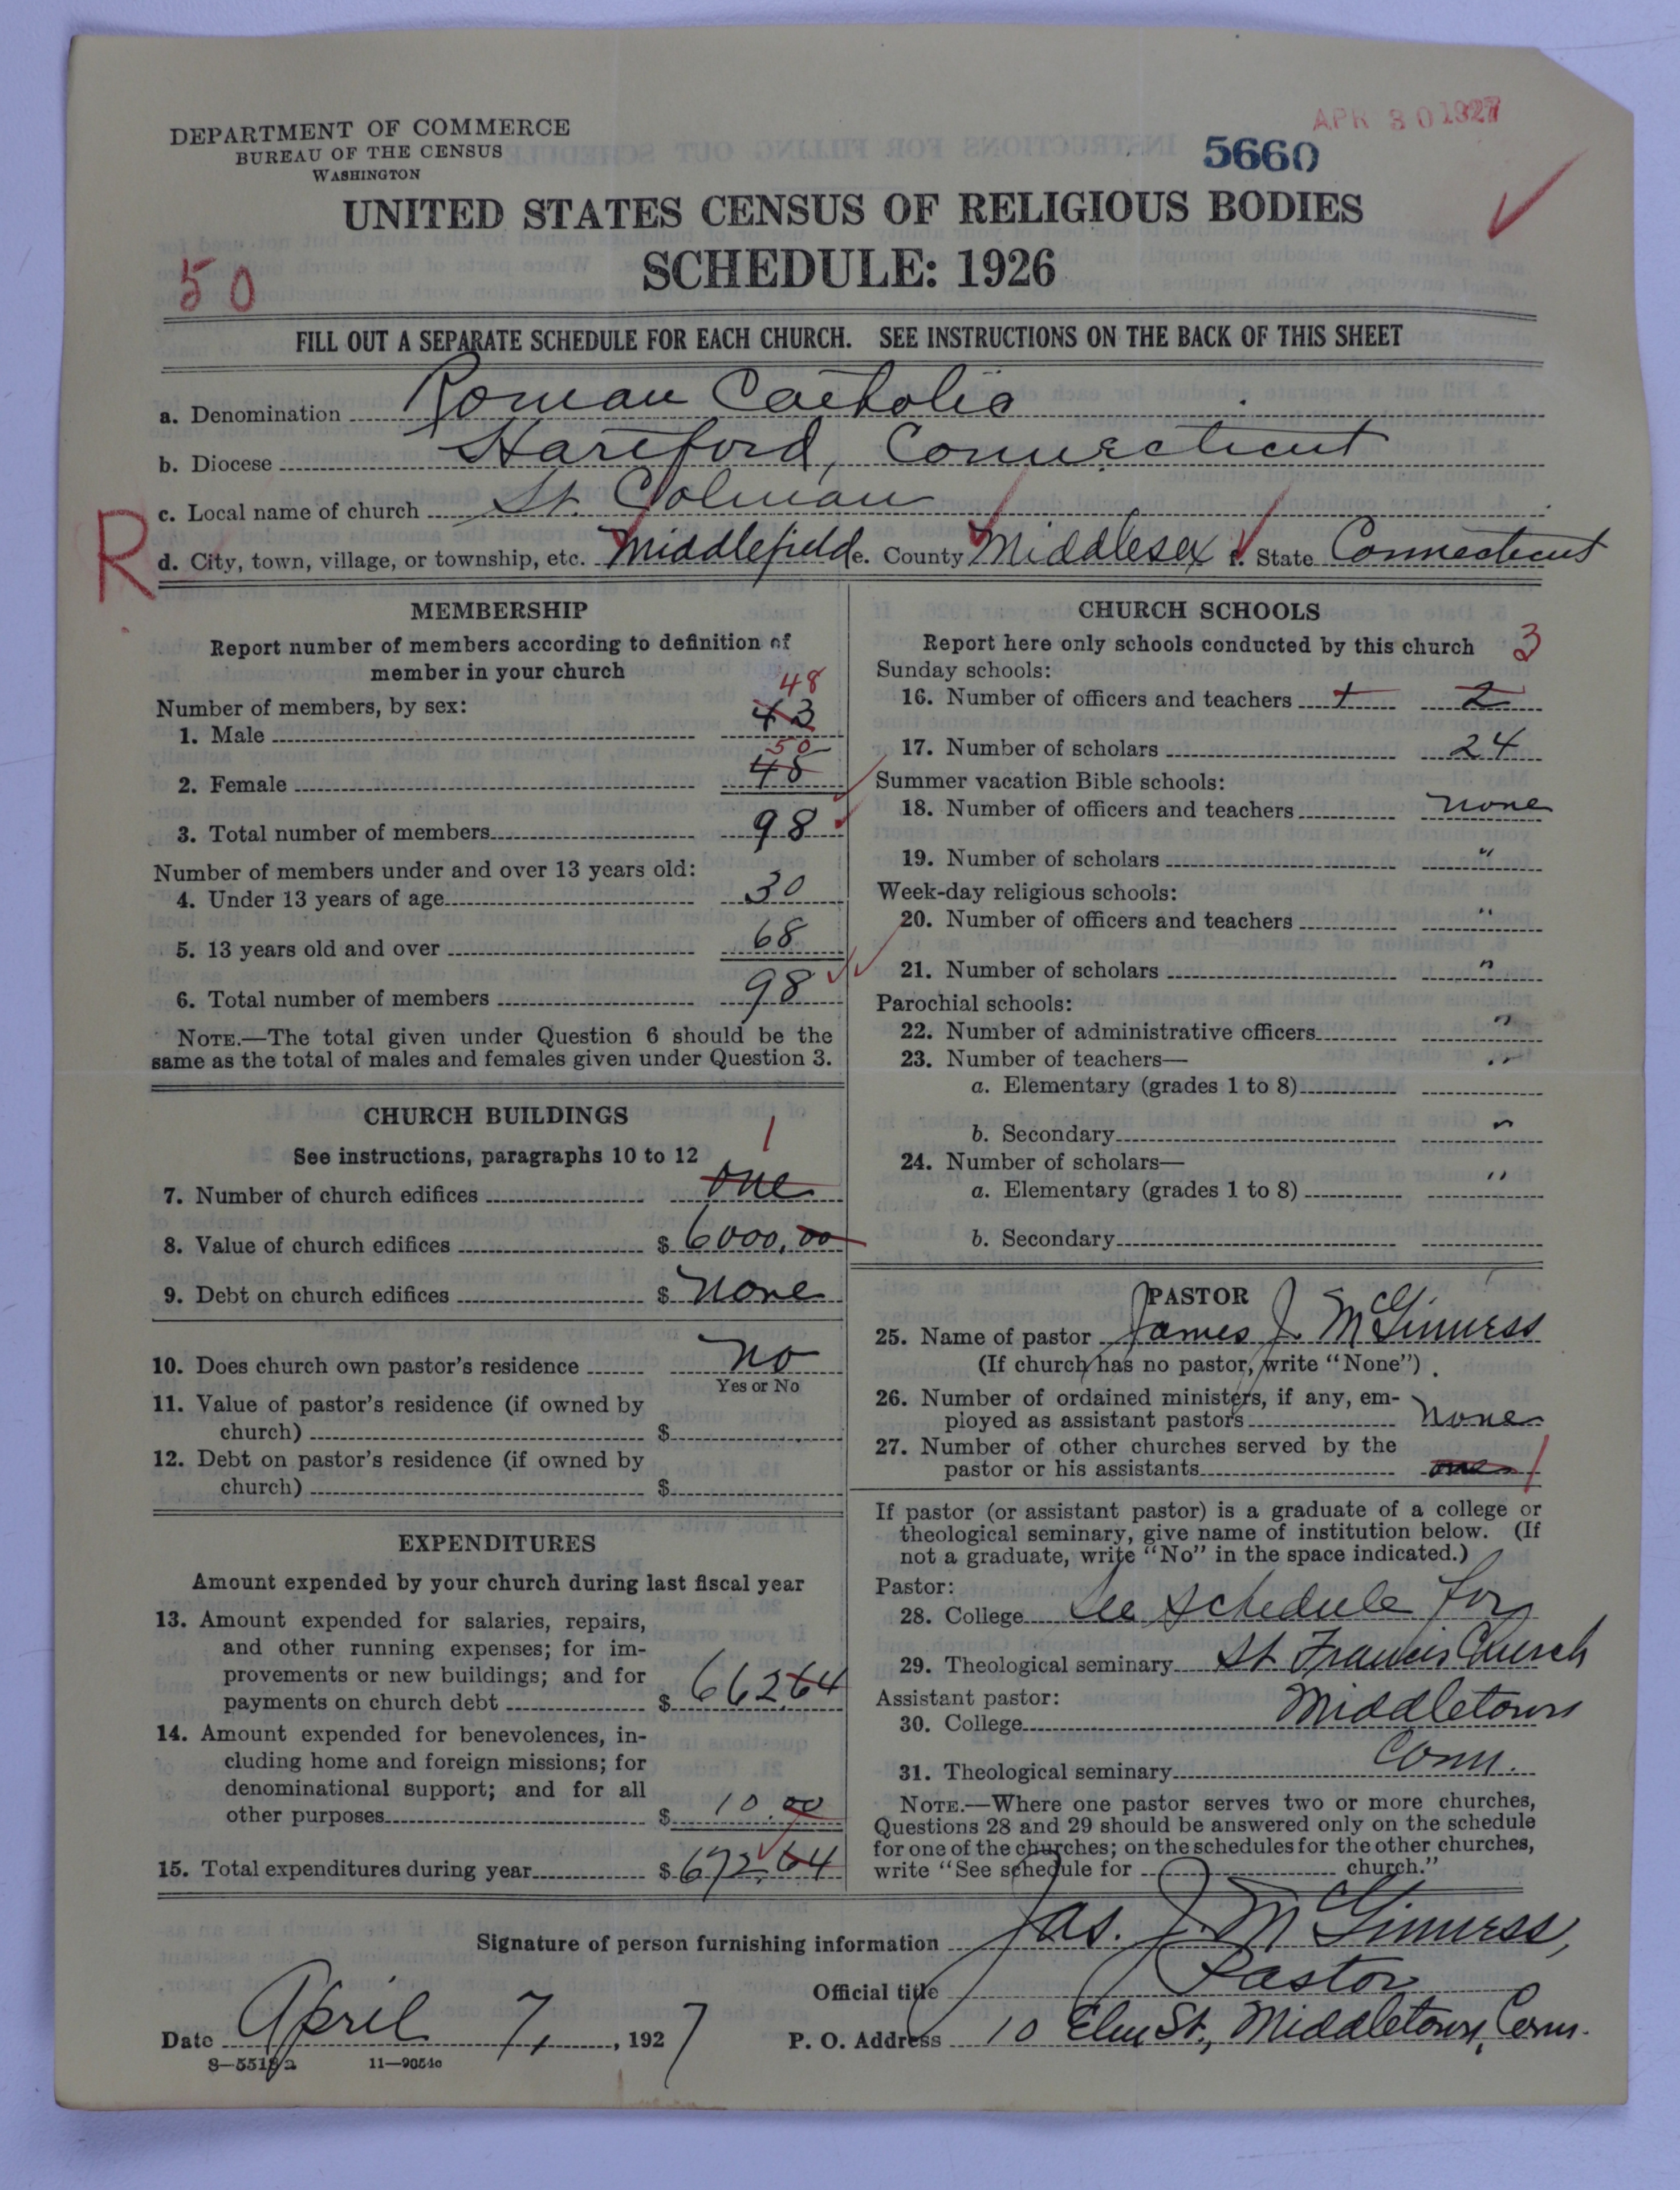 DEPARTMENT OF COMMERCE
BUREAU OF THE CENSUS
WASHINGTON
APR 30 1927
5660
UNITED STATES CENSUS OF RELIGIOUS BODIES
SCHEDULE: 1926
50
FILL OUT A SEPARATE SCHEDULE FOR EACH CHURCH. SEE INSTRUCTIONS ON THE BACK OF THIS SHEET
a. Denomination Roman Catholic
b. Diocese Hartford, Connecticut
c. Local name of church St. Colman
R
d. City, town, village, or township, etc. Middlefield e. County Middlesex f. State Connecticut
MEMBERSHIP
Report number of members according to definition of
member in your church
Number of members, by sex:
48
1. Male 43
50
2. Female 45
3. Total number of members 98
Number of members under and over 13 years old:
4. Under 13 years of age 30
5. 13 years old and over 68
6. Total number of members 98
NOTE.—The total given under Question 6 should be the
same as the total of males and females given under Question 3.
CHURCH BUILDINGS
See instructions, paragraphs 10 to 12
1
7. Number of church edifices one
8. Value of church edifices $ 6000.00
9. Debt on church edifices $ none
10. Does church own pastor's residence no
Yes or No
11. Value of pastor's residence (if owned by
church) $
12. Debt on pastor's residence (if owned by
church) $
EXPENDITURES
Amount expended by your church during last fiscal year
13. Amount expended for salaries, repairs,
and other running expenses; for im-
provements or new buildings; and for
payments on church debt $ 662.64
14. Amount expended for benevolences, in-
cluding home and foreign missions; for
denominational support; and for all
other purposes $ 10.00
15. Total expenditures during year $ 672.64
CHURCH SCHOOLS
Report here only schools conducted by this church
3
Sunday schools:
16. Number of officers and teachers 1 2
17. Number of scholars 24
Summer vacation Bible schools:
18. Number of officers and teachers none
19. Number of scholars "
Week-day religious schools:
20. Number of officers and teachers "
21. Number of scholars "
Parochial schools:
22. Number of administrative officers "
23. Number of teachers— "
a. Elementary (grades 1 to 8)
b. Secondary "
24. Number of scholars—
a. Elementary (grades 1 to 8) "
b. Secondary
PASTOR
25. Name of pastor James J. McGinness
(If church has no pastor, write "None")
26. Number of ordained ministers, if any, em-
ployed as assistant pastors none
27. Number of other churches served by the
pastor or his assistants one 1
If pastor (or assistant pastor) is a graduate of a college or
theological seminary, give name of institution below. (If
not a graduate, write "No" in the space indicated.)
Pastor:
28. College See schedule for
29. Theological seminary St. Francis Church
Assistant pastor:
30. College Middletown
31. Theological seminary Conn.
NOTE.—Where one pastor serves two or more churches,
Questions 28 and 29 should be answered only on the schedule
for one of the churches; on the schedules for the other churches,
write "See schedule for church."
Signature of person furnishing information Jas. J. McGinness,
Official title Pastor
Date April 7, 1927
P. O. Address 10 Elm St., Middletown, Conn.
8—5518a 11—9054c